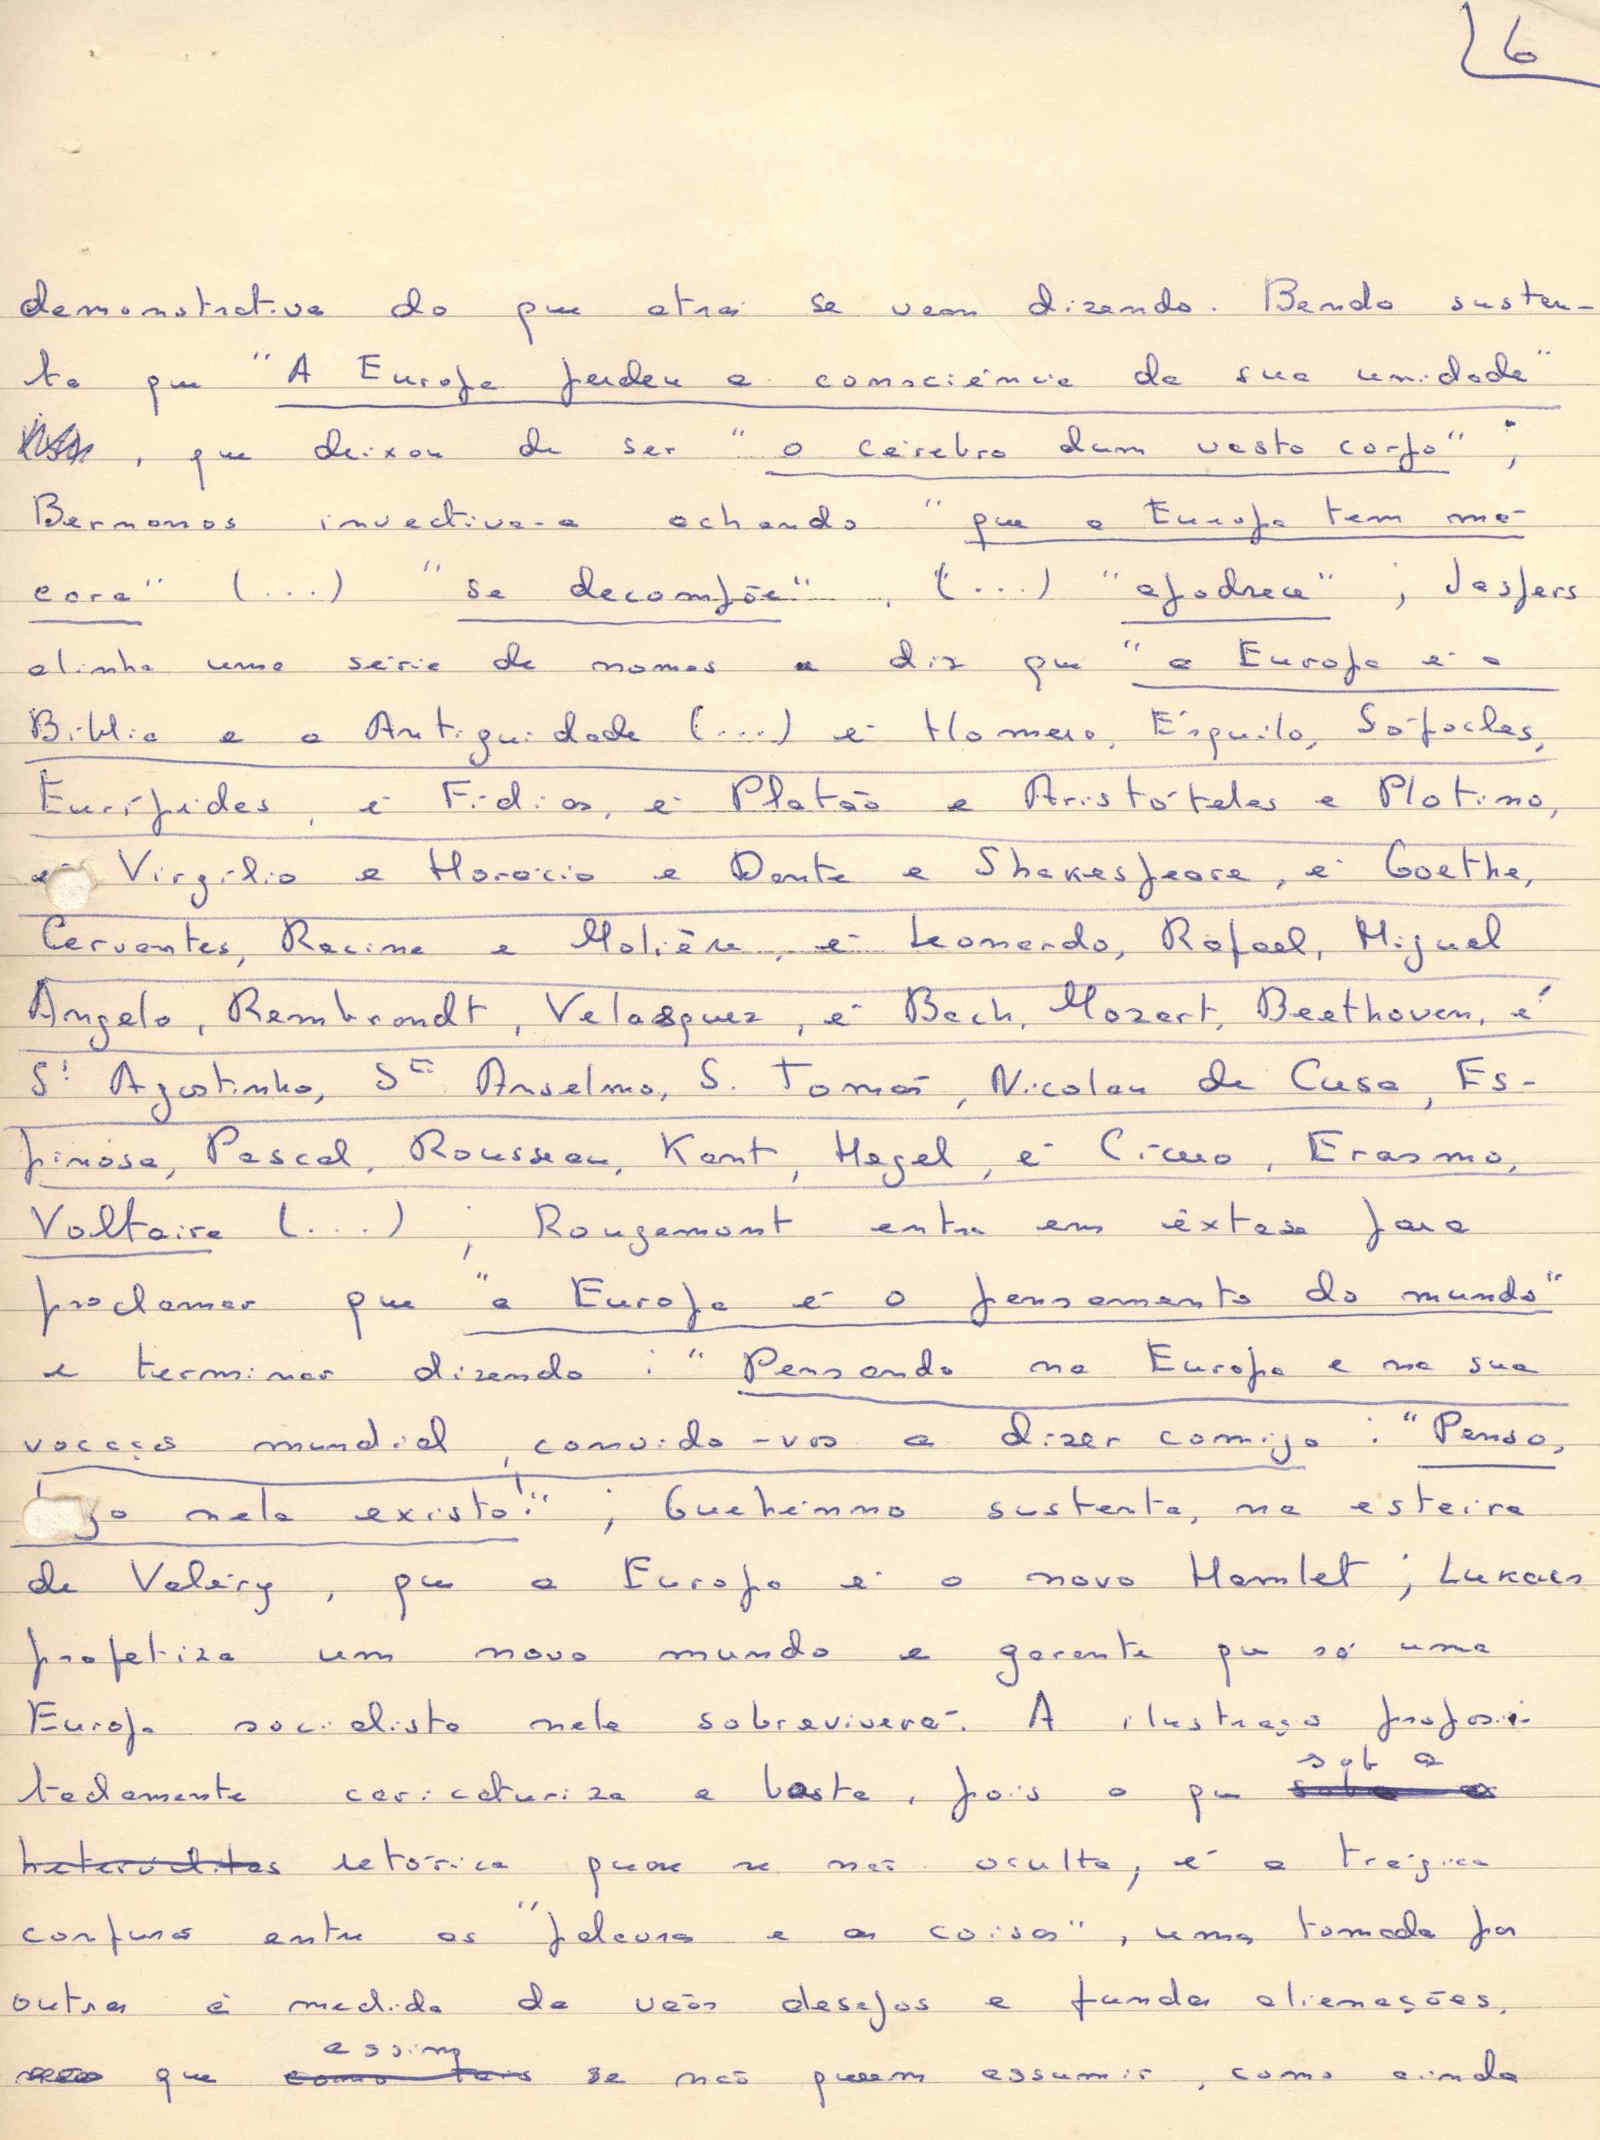 6
demonstrativa do que atrás se vem dizendo. Benda susten-
ta que "A Europa perdeu a consciência da sua unidade"
, que deixou de ser "o cérebro dum vasto corpo";
Bernanos invectiva-a achando "que a Europa tem má
cara" (...) "se decompõe", (...) "apodrece"; Jaspers
alinha uma série de nomes e diz que "a Europa é a
Bíblia e a Antiguidade (...) é Homero, Ésquilo, Sófocles,
Eurípides, é Fídias, é Platão e Aristóteles e Plotino,
é Virgílio e Horácio e Dante e Shakespeare, é Goethe,
Cervantes, Racine e Molière, é Leonardo, Rafael, Miguel
Angelo, Rembrandt, Velasquez, é Bach, Mozart, Beethoven, é
Sto Agostinho, Sto Anselmo, S. Tomás, Nicolau de Cusa, Es-
pinosa, Pascal, Rousseau, Kant, Hegel, é Cícero, Erasmo,
Voltaire (...); Rougemont entra em êxtase para
proclamar que "a Europa é o pensamento do mundo"
e terminar dizendo: "Pensando na Europa e na sua
vocação mundial, convido-vos a dizer comigo: "Penso,
logo nela existo!"; Guehénno sustenta, na esteira
de Valéry, que a Europa é o novo Hamlet; Lukacs
profetiza um novo mundo e garante que só uma
Europa socialista nele sobreviverá. A ilustração proposi-
tadamente caricaturiza e basta, pois o que sob a
heteróclitas retórica quase se não oculta, é a trágica
confusão entre as "palavras e as coisas", umas tomadas por
outras à medida de vãos desejos e fundas alienações,
que assim se não querem assumir, como ainda